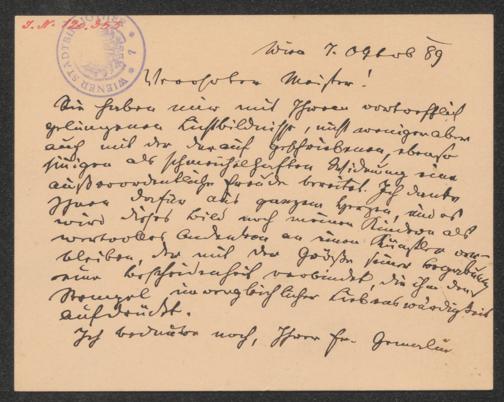 J. N. 120.355
WIENER STADTBI
Wien 7. Oktob 89
Verehrter Meister!
Sie haben mir mit Ihrem vortrefflich
gelungenen Lichtbildnisse, nicht weniger aber
auch mit der darauf geschriebenen, ebenso
sinnigen als schmeichelhaften Widmung eine
außerordentliche Freude bereitet. Ich danke
Ihnen dafür aus ganzem Herzen, und es
wird dieses Bild noch meinen Kindern als
wertvolles Andenken an einen Künstler ver-
bleiben, der mit der Größe seiner Begabung
eine Bescheidenheit verbindet, die ihm den
Stempel unvergleichlicher Liebenswürdigkeit
aufdrückt.
Ich bedaure noch, Ihrer Fr. Gemalin